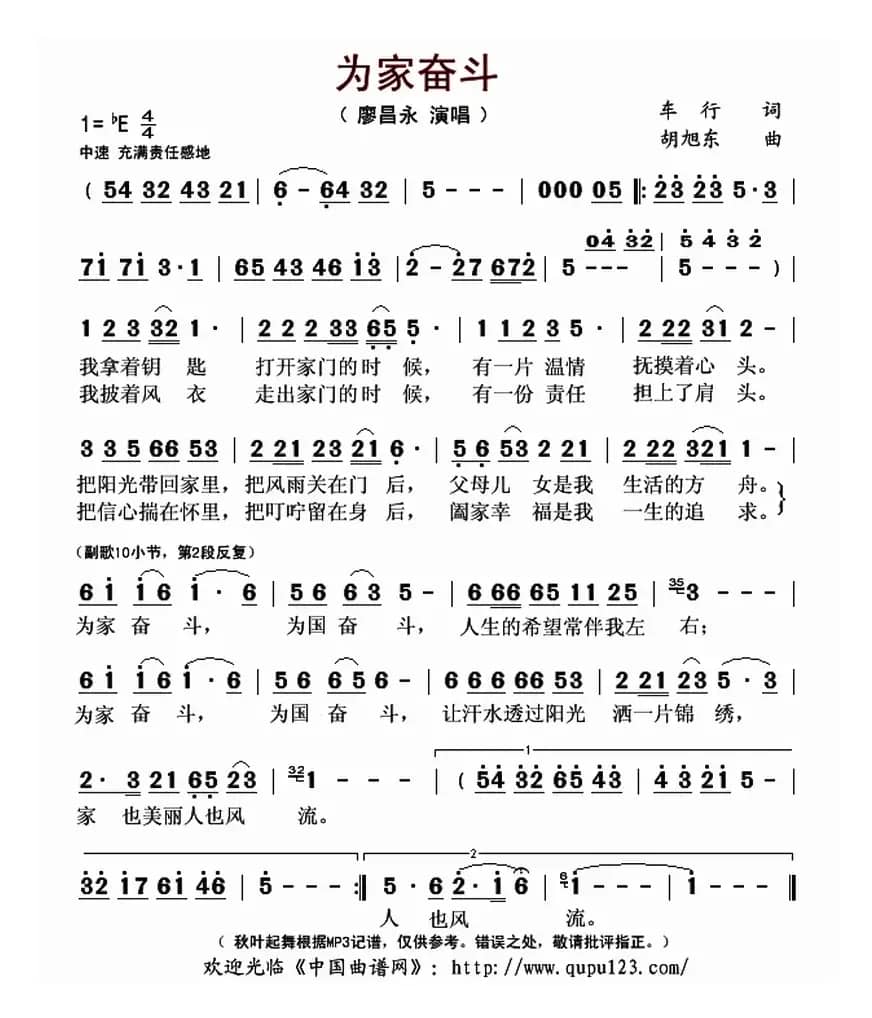 为家奋斗
（ 廖昌永 演唱 ）
车 行 词
胡旭东 曲
1= ♭E 4/4
中速 充满责任感地
( 54 32 43 21 | 6 - 64 32 | 5 - - - | 000 05 ‖: 23 23 5·3 |
71 71 3·1 | 65 43 46 13 | 2 - 27 672 | 5 - - - | 5 - - - ) |
04 32 | 5 4 3 2
1 2 3 32 1· | 2 2 2 33 65 5· | 1 1 2 3 5· | 2 22 31 2 - |
我拿着钥 匙 打开家门的时 候， 有一片 温情 抚摸着心 头。
我披着风 衣 走出家门的时 候， 有一份 责任 担上了肩 头。
3 3 5 66 53 | 2 21 23 21 6· | 5 6 53 2 21 | 2 22 321 1 - |
把阳光带回家里，把风雨关在门 后， 父母儿 女是我 生活的方 舟。
把信心揣在怀里，把叮咛留在身 后， 阖家幸 福是我 一生的追 求。
（副歌10小节，第2段反复）
6 1 1 6 1 · 6 | 5 6 6 3 5 - | 6 66 65 11 25 | 35 3 - - - |
为家 奋 斗， 为国 奋 斗， 人生的希望常伴我左 右；
6 1 1 6 1 · 6 | 5 6 6 5 6 - | 6 6 6 66 53 | 2 21 23 5 · 3 |
为家 奋 斗， 为国 奋 斗， 让汗水透过阳光 洒一片锦 绣，
1
2· 3 21 65 23 | 32 1 - - - | ( 54 32 65 43 | 4 3 21 5 - |
家 也美丽人也风 流。
2
32 17 61 46 | 5 - - - :‖ 5· 6 2· 1 6 | 6 1 - - - | 1 - - - ‖
人 也风 流。
（ 秋叶起舞根据MP3记谱，仅供参考。错误之处，敬请批评指正。）
欢迎光临《中国曲谱网》：http://www.qupu123.com/